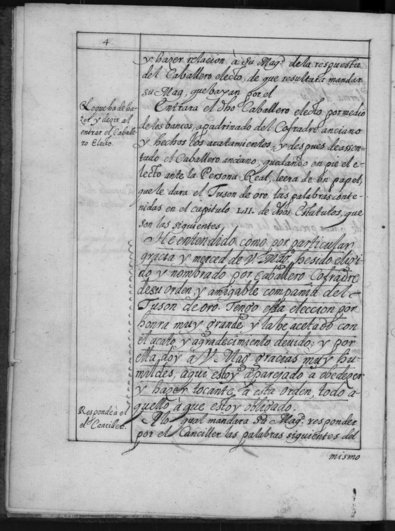 4
y hazer relacion, à su Mag.d de la respuesta
del Caballero electo, de que resultarà mandar
su Mag.d que bayan por el
Lo que ha de ha-
zer y dezir al
entrar el Caballe-
ro Electo.
Entrara el dho Caballero electo por medio
de los bancos, apadrinado del Cofradre anciano
y hechos los acatamientos, y despues de assen-
tado el Caballero anciano, quedando en pie el e-
lecto ante la Persona Real, leera de un papel,
que le dara el Tuson de oro las palabras conte-
nidas en el capitulo LII. de dhos Estatutos, que
son las siguientes,
He entendido como por particular
gracia y merced de V. Mag.d he sido elegi-
do y nombrado por Caballero Cofradre
de su orden y amigable compania del
Tuson de oro. Tengo esta eleccion por
honra muy grande y la he acetado con
el acato y agradecimiento deuido; y por
ella doy à V. Mag.d gracias muy hu-
mildes, aqui estoy aparejado à obedezer
y hazer tocante à esta Orden, todo a-
quello, à que estoy obligado.
Responde à el
el Canciller.
A lo qual mandara Su Mag.d responder
por el Canciller las palabras siguientes del
mismo